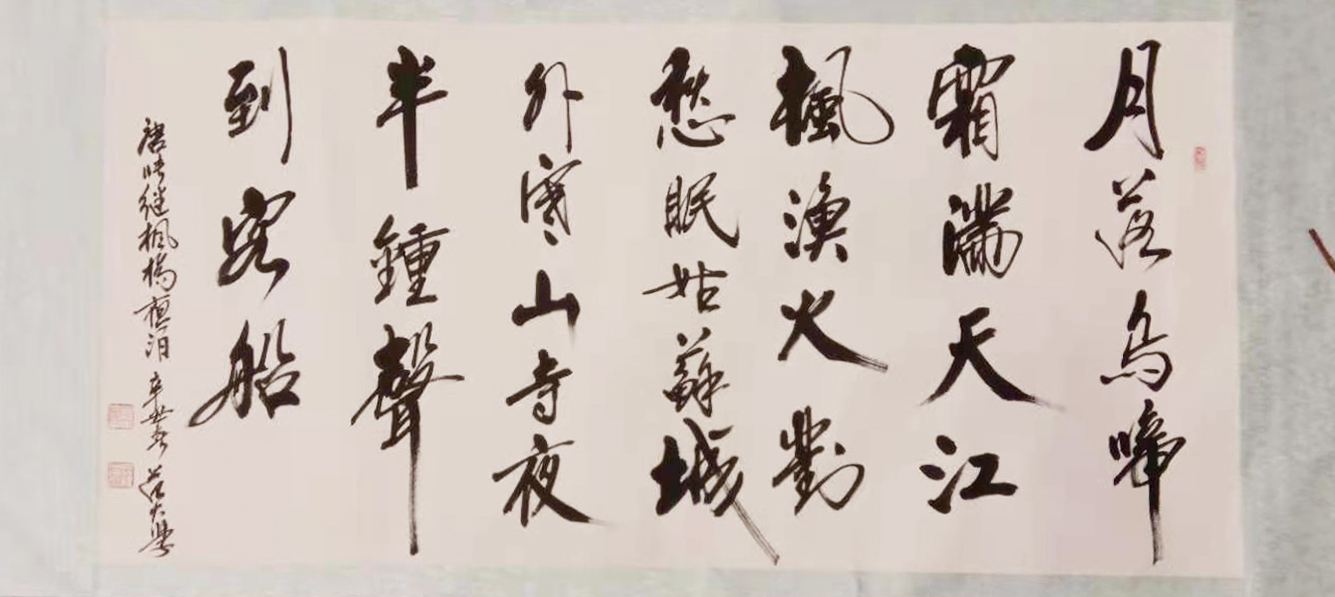 月落烏啼
霜滿天江
楓漁火對
愁眠姑蘇城
外寒山寺夜
半鍾聲
到客船
唐張继楓橋夜泊 辛丑冬 范大學